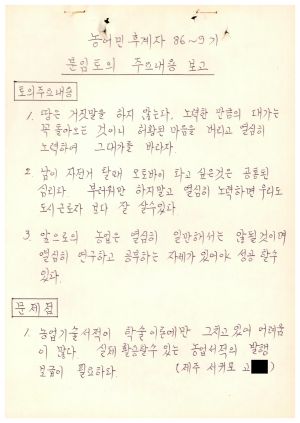 농어민 후계자 86~9기
분임토의 주요내용 보고
토의주요내용
1. 땅은 거짓말을 하지 않는다. 노력한 만큼의 대가는
꼭 돌아오는 것이니 허황된 마음을 버리고 열심히
노력하여 그대가를 바라자.
2. 남이 자전거 탈때 오토바이 타고 싶은것은 공통된
심리다 부러워만 하지말고 열심히 노력하면 우리도
도시근로자 보다 잘 살수있다.
3. 앞으로의 농업은 열심히 일만해서는 않될것이며
열심히 연구하고 공부하는 자세가 있어야 성공 할수
있다.
문제점
1. 농업기술서적이 학술이론에만 그치고 있어 어려움
이 많다. 실제 활용할수 있는 농업서적의 발행
보급이 필요하다. (제주 서귀포 고